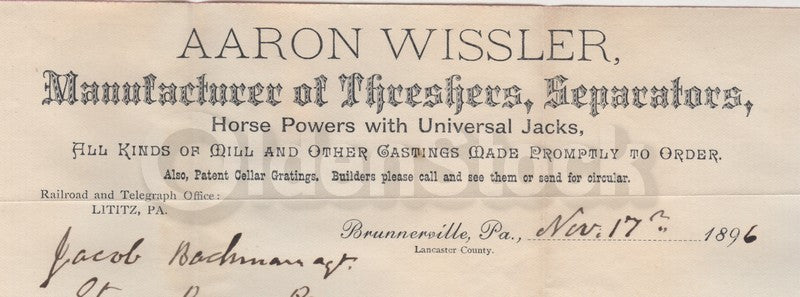 AARON WISSLER,
Manufacturer of Threshers, Separators,
Horse Powers with Universal Jacks,
ALL KINDS OF MILL AND OTHER CASTINGS MADE PROMPTLY TO ORDER.
Also, Patent Cellar Gratings. Builders please call and see them or send for circular.
Railroad and Telegraph Office:
LITITZ, PA.
Brunnerville, Pa., Nov. 17th 1896
Lancaster County.
Jacob Bachman agt.